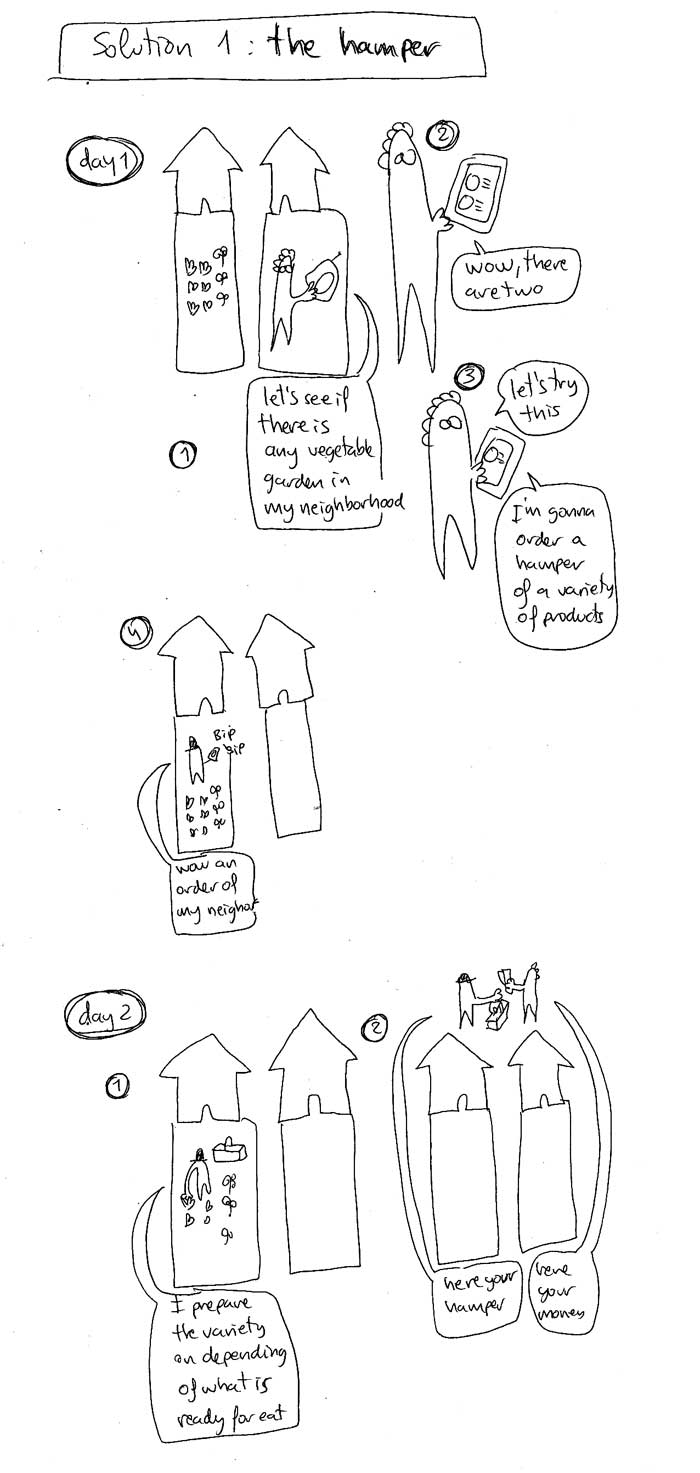 Solution 1: the hamper
day 1
2
wow, there
are two
let's see if
there is
any vegetable
garden in
my neighborhood
1
3
let's try
this
I'm gonna
order a
hamper
of a variety
of products
4
Bip
Bip
wow an
order of
my neighbor
day 2
1
I prepare
the variety
on depending
of what is
ready for eat
2
here your
hamper
here
your
money